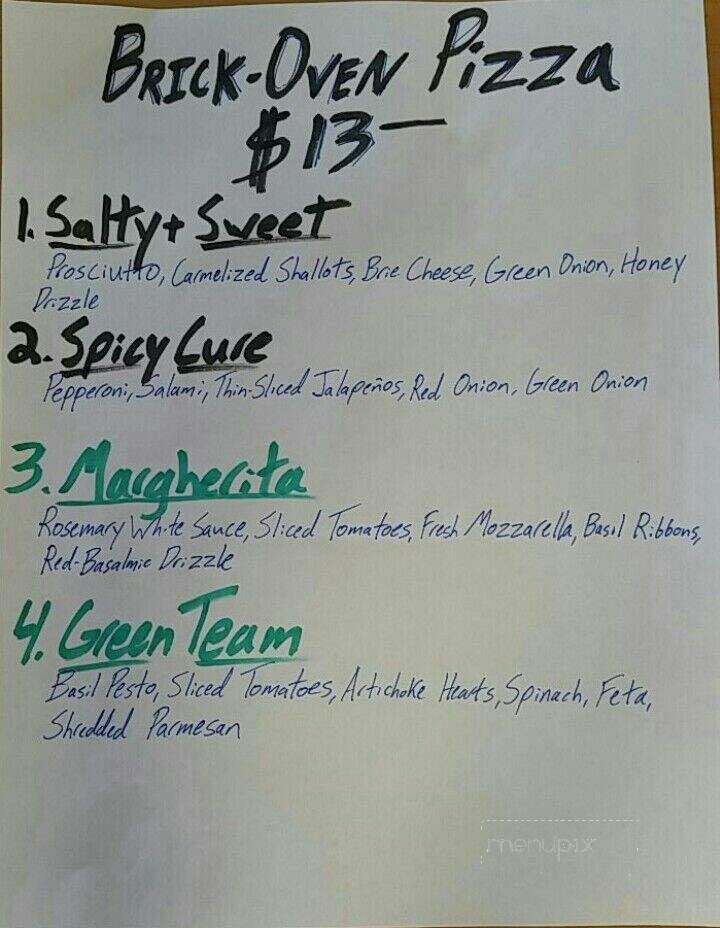 BRICK-OVEN PIZZA
$13—
1. Salty + Sweet
Prosciutto, Carmelized Shallots, Brie Cheese, Green Onion, Honey
Drizzle
2. Spicy Cure
Pepperoni, Salami, Thin-Sliced Jalapeños, Red Onion, Green Onion
3. Margherita
Rosemary White Sauce, Sliced Tomatoes, Fresh Mozzarella, Basil Ribbons,
Red-Basalmic Drizzle
4. Green Team
Basil Pesto, Sliced Tomatoes, Artichoke Hearts, Spinach, Feta,
Shredded Parmesan
menupix